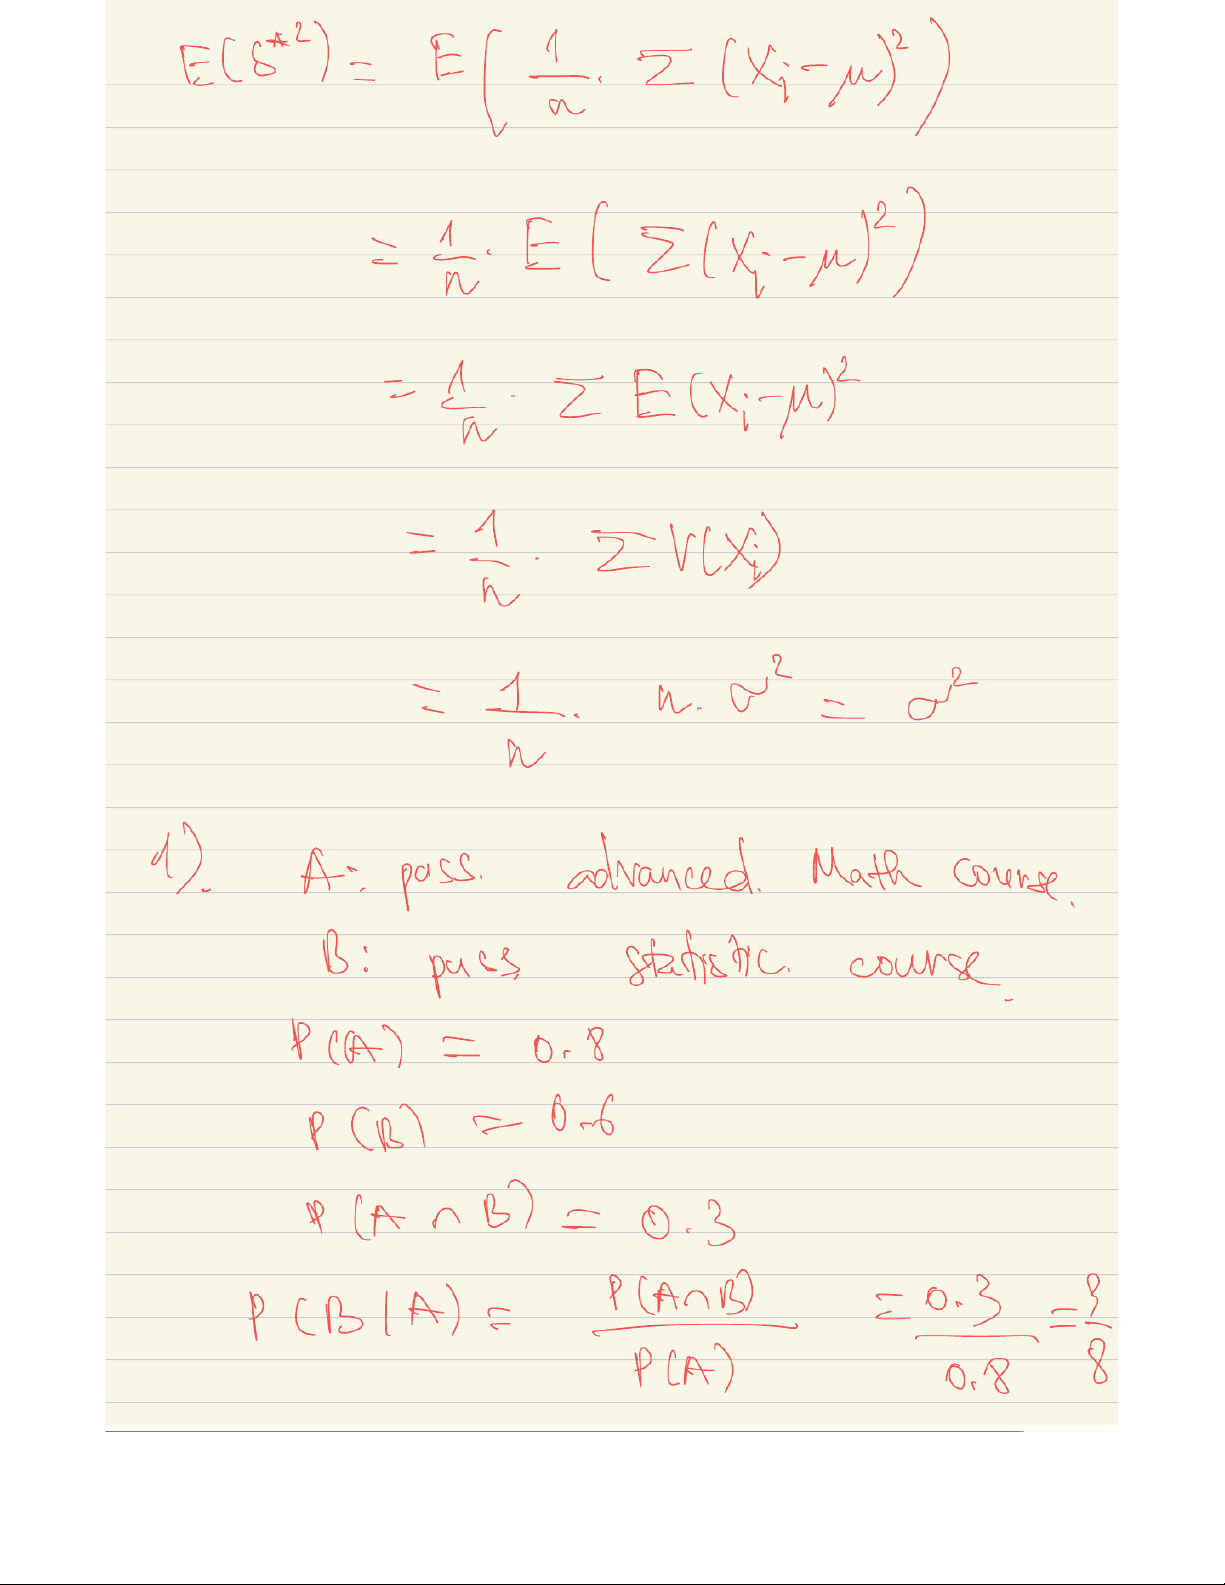 E(S*²) = E( 1/n · Σ (Xi - μ)² )
= 1/n · E ( Σ (Xi - μ)² )
= 1/n · Σ E (Xi - μ)²
= 1/n · Σ V(Xi)
= 1/n · n. σ² = σ²
1). A: pass. advanced. Math course.
B: pass statistic. course.
P(A) = 0.8
P(B) = 0.6
P(A ∩ B) = 0.3
P(B|A) = P(A∩B) / P(A) = 0.3 / 0.8 = 3/8